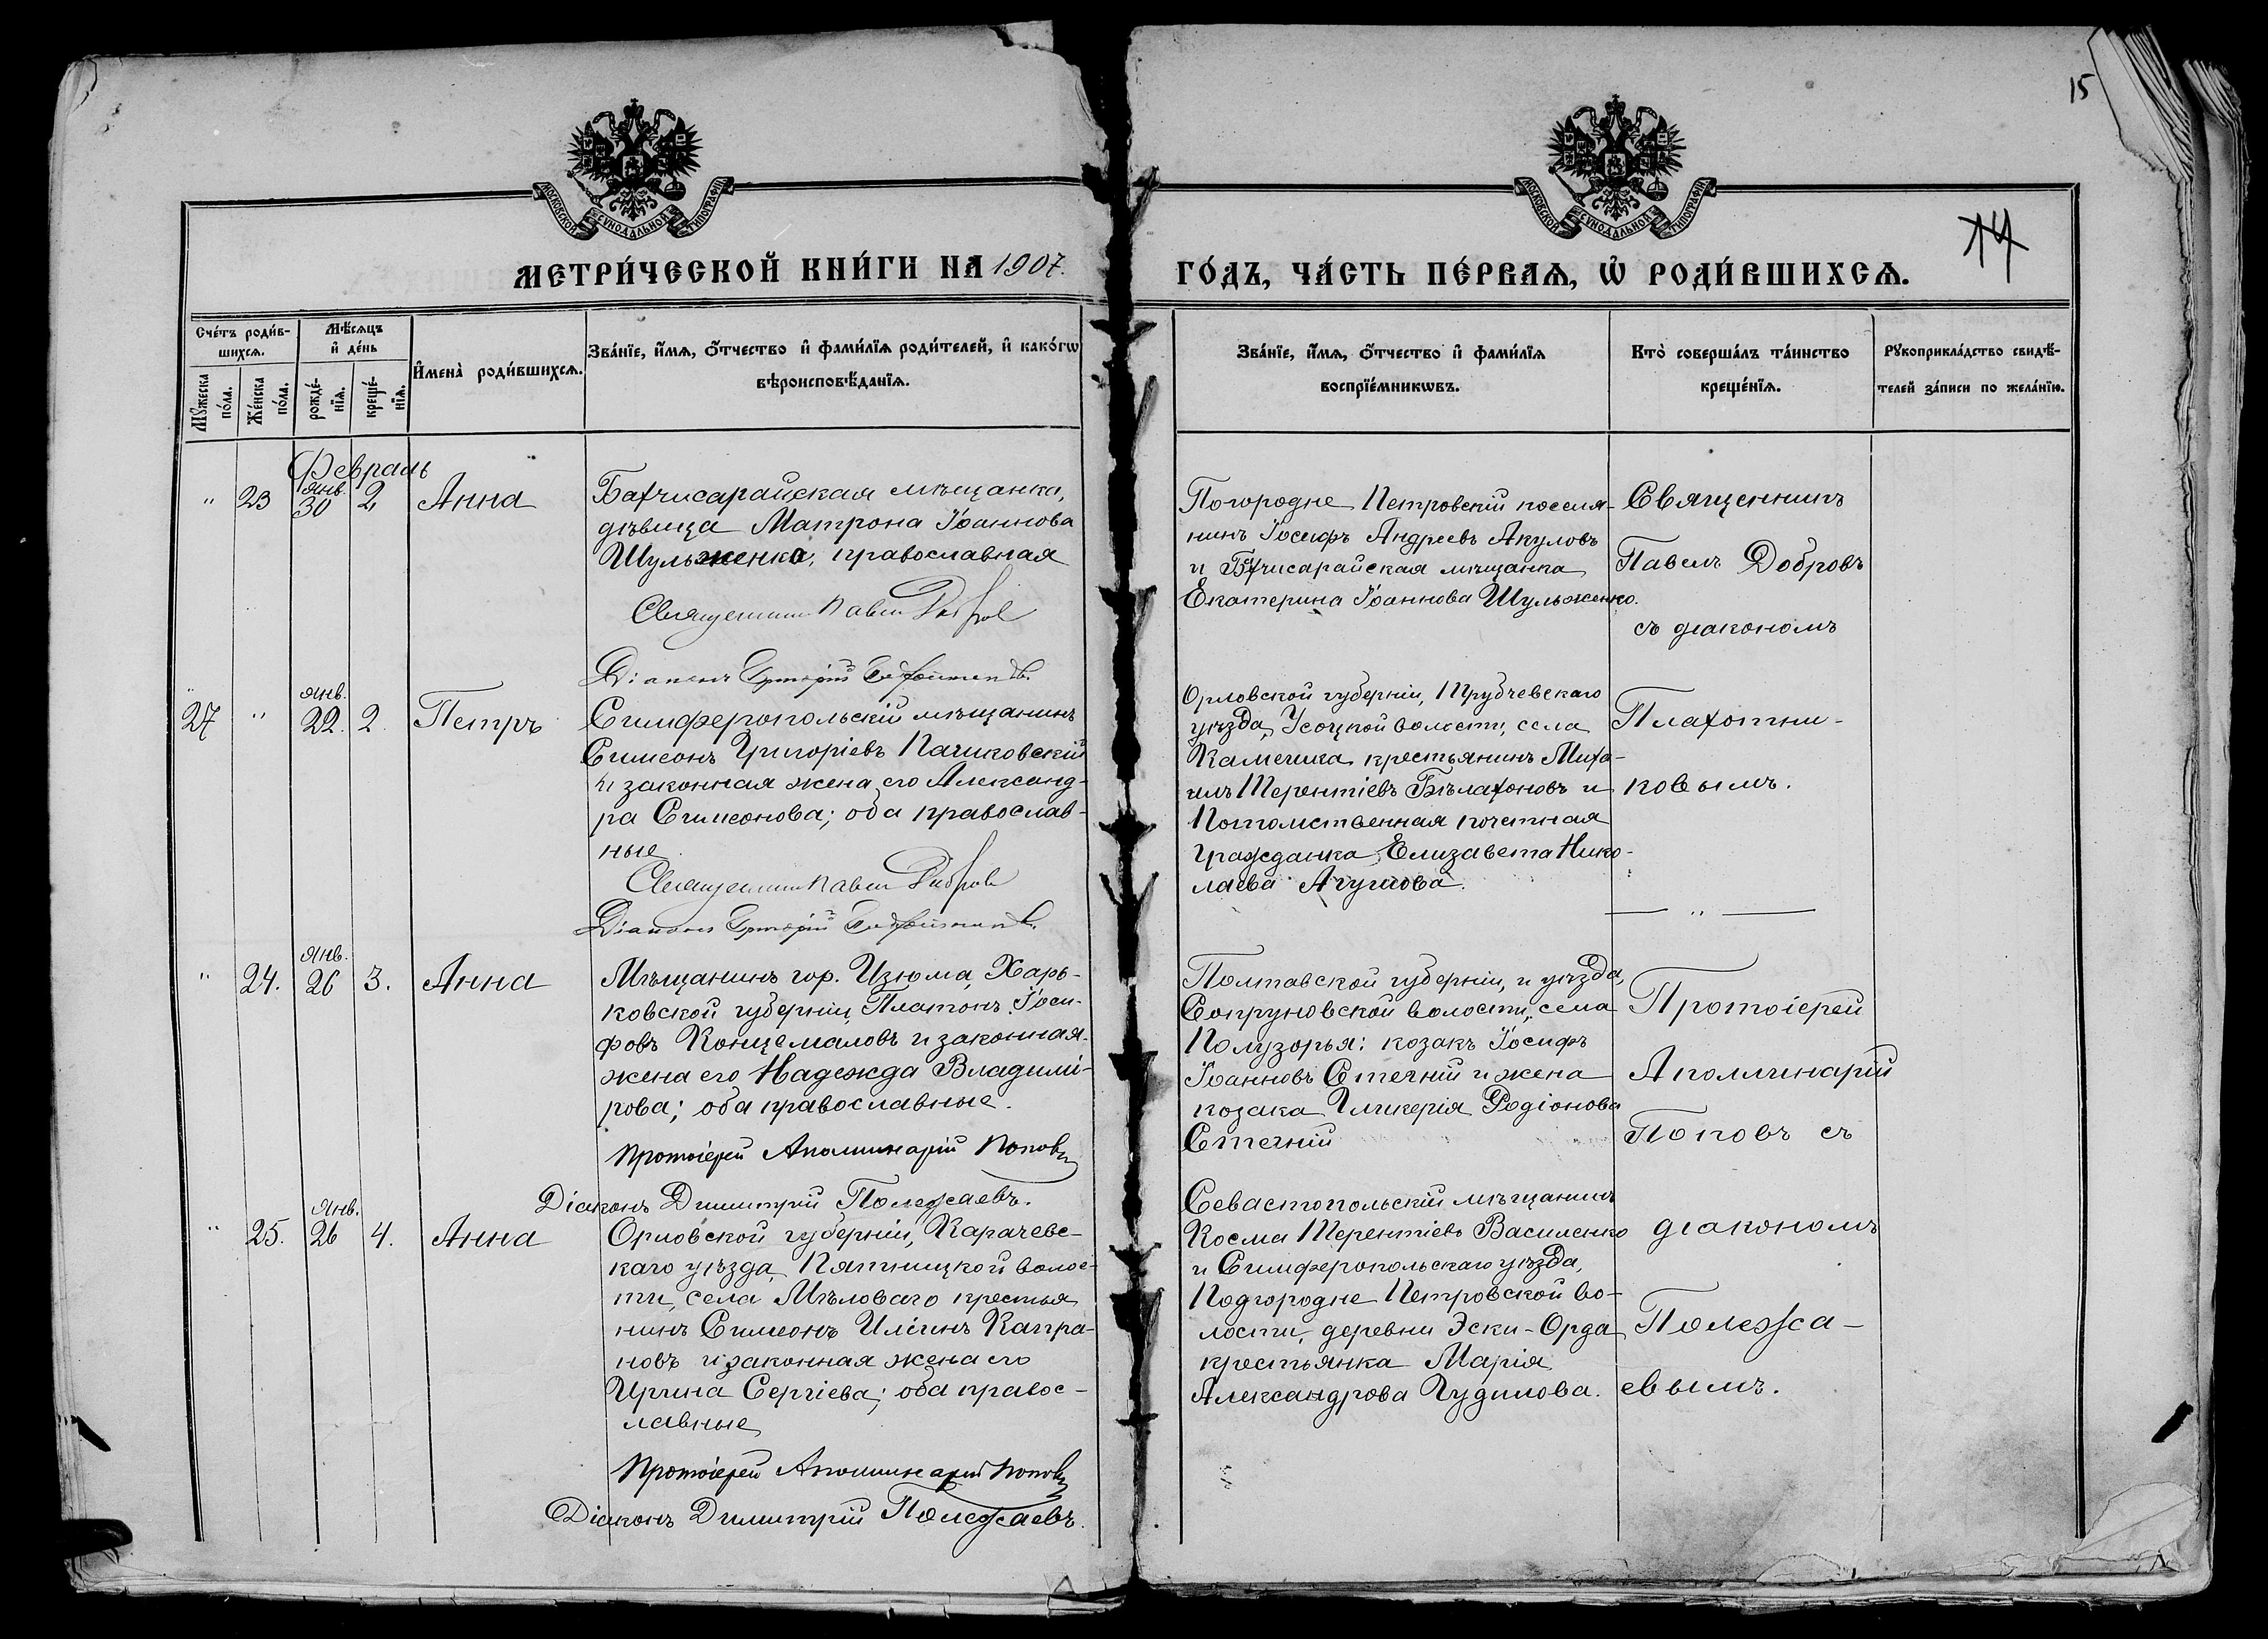 15
МОСКОВСКОЙ СѴНОДАЛЬНОЙ ТИПОГРАФІИ
МОСКОВСКОЙ СѴНОДАЛЬНОЙ ТИПОГРАФІИ
14
МЕТРИ́ЧЕСКОЙ КНИ́ГИ НА 1907.
ГО́ДЪ, ЧА́СТЬ ПЕ́РВАѦ, Ѡ҆ РОДИ́ВШИХСѦ.
Сче́тъ роди́в-
шихсѧ.
Мꙋ́жеска
по́ла.
Же́нска
по́ла.
Мѣ́сѧцъ
и҆ де́нь
рожде́-
нїѧ.
креще́-
нїѧ.
И҆мена̀ роди́вшихсѧ.
Зва́нїе, и҆́мѧ, ѻ҆́тчество и҆ фами́лїѧ роди́телей, и҆ како́гѡ
вѣроисповѣ́данїѧ.
Зва́нїе, и҆́мѧ, ѻ҆́тчество и҆ фами́лїѧ
воспрїе́мникѡвъ.
Кто̀ соверша́лъ та́инство
креще́нїѧ.
Рꙋкоприкла́дство свидѣ́-
телей за́писи по жела́нїю.
Февраль
" 23 янв. 30 2 Анна
Бахчисарайская мѣщанка,
дѣвица Матрона Іоаннова
Шульженко, православная
Священникъ Павелъ Добровъ
Діаконъ Григорій
Погородне Петровскій поселя-
нинъ Іосифъ Андреевъ Акуловъ
и Бахчисарайская мѣщанка
Екатерина Іоаннова Шульженко.
Священникъ
Павелъ Добровъ
съ діакономъ
27 " янв. 22. 2. Петръ
Симферопольскій мѣщанинъ
Симеонъ Григоріевъ Пачиковскій
и законная жена его Александ-
ра Симеонова; оба православ-
ные
Священникъ Павелъ Добровъ
Діаконъ Григорій
Орловской губерніи, Трубчевскаго
уѣзда, Усоцкой волости, села
Камешка крестьянинъ Миха-
илъ Терентіевъ Бѣлахоновъ и
Потомственная почетная
гражданка Елизавета Нико-
лаева Агушова.
Плахотни-
ковымъ.
— " —
" 24. янв. 26 3. Анна
Мѣщанинъ гор. Изюма, Харь-
ковской губерніи, Платонъ Іоси-
фовъ Концемаловъ и законная
жена его Надежда Владимі-
рова; оба православные.
Протоіерей Аполлинарій Поповъ
Діаконъ Димитрій Полежаевъ.
Полтавской губерніи, и уѣзда,
Сопруновской волости, села
Полузорья: козакъ Іосифъ
Іоанновъ Степній и жена
козака Гликерія Родіонова
Степній
Протоіерей
Аполлинарій
Поповъ съ
" 25. янв. 26 4. Анна
Орловской губерніи, Карачевс-
каго уѣзда, Пятницкой волос-
ти, села Мѣловаго крестья
нинъ Симеонъ Иліинъ Капра-
новъ и законная жена его
Ирина Сергіева; оба правос-
лавные
Протоіерей Аполлинарій Поповъ
Діаконъ Димитрій Полежаевъ.
Севастопольскій мѣщанинъ
Косма Терентіевъ Василенко
и Симферопольскаго уѣзда,
Подгородне Петровской во-
лости, деревни Эски-Орда
крестьянка Марія
Александрова Гудимова.
діакономъ
Полежа-
евымъ.